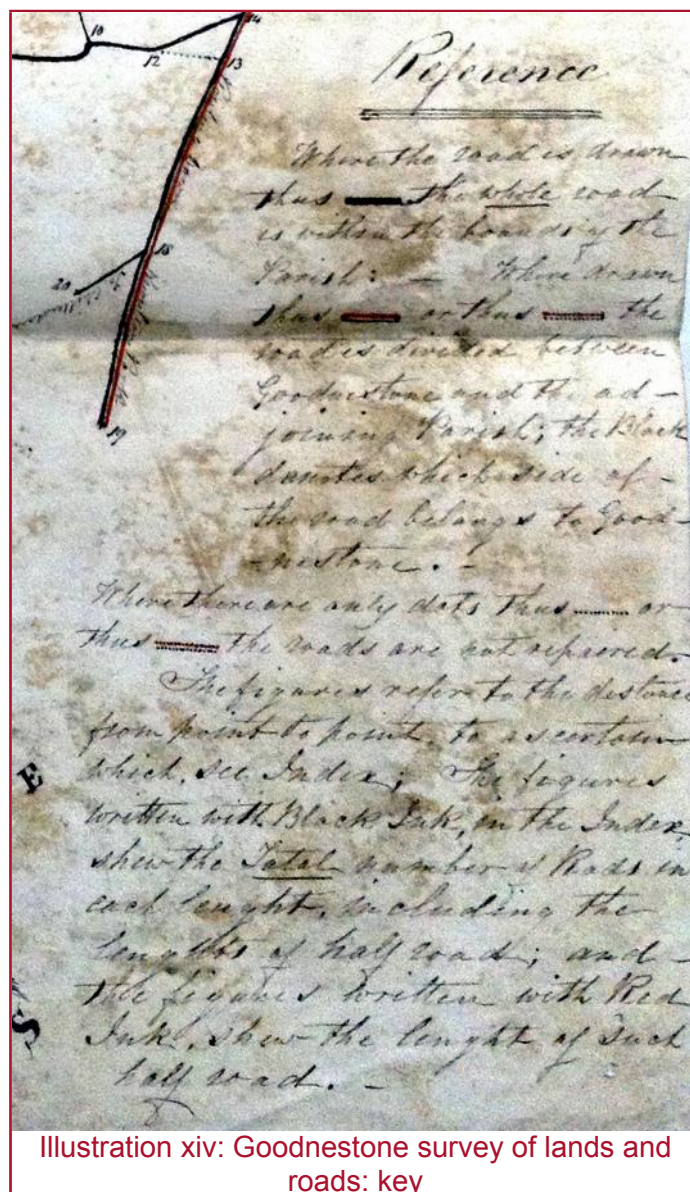 14
10
12
13
Reference
Where the road is drawn
thus the whole road
is within the bounds of the
Parish: — Where drawn
thus or thus the
road is divided between
Goodnestone and the ad-
joining Parish; the Black
denotes which side of -
the road belongs to Good-
-nestone. -
18
20
19
Where there are only dots thus or
thus the roads are not repaired.
The figures refer to the distance
from point to point, to ascertain
which, see Index; The figures
written with Black Ink, in the Index,
shew the Total number of Rods in
each lenght, including the
lenghts of half road; and -
the figures written with Red
Ink, shew the lenght of such
half road. -
E
S
Illustration xiv: Goodnestone survey of lands and
roads: key